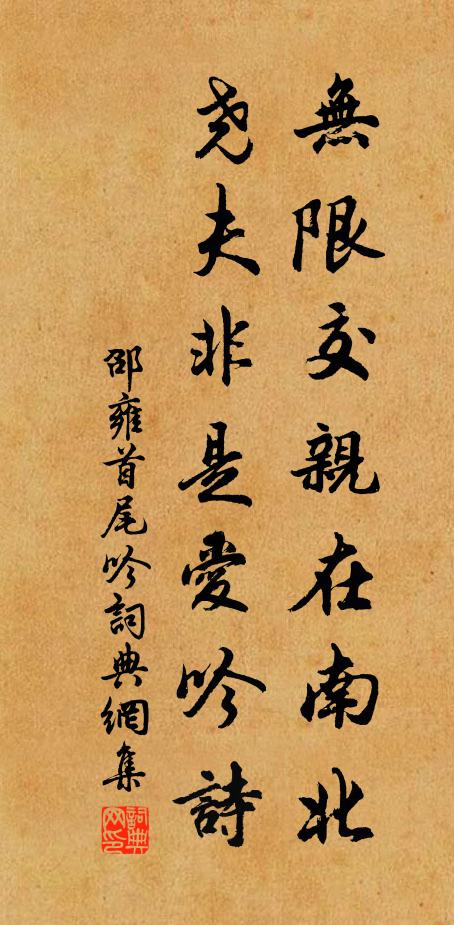 無限交親在南北
尧夫非是愛吟詩
邵雍首尾吟詞典網集
詞典網印